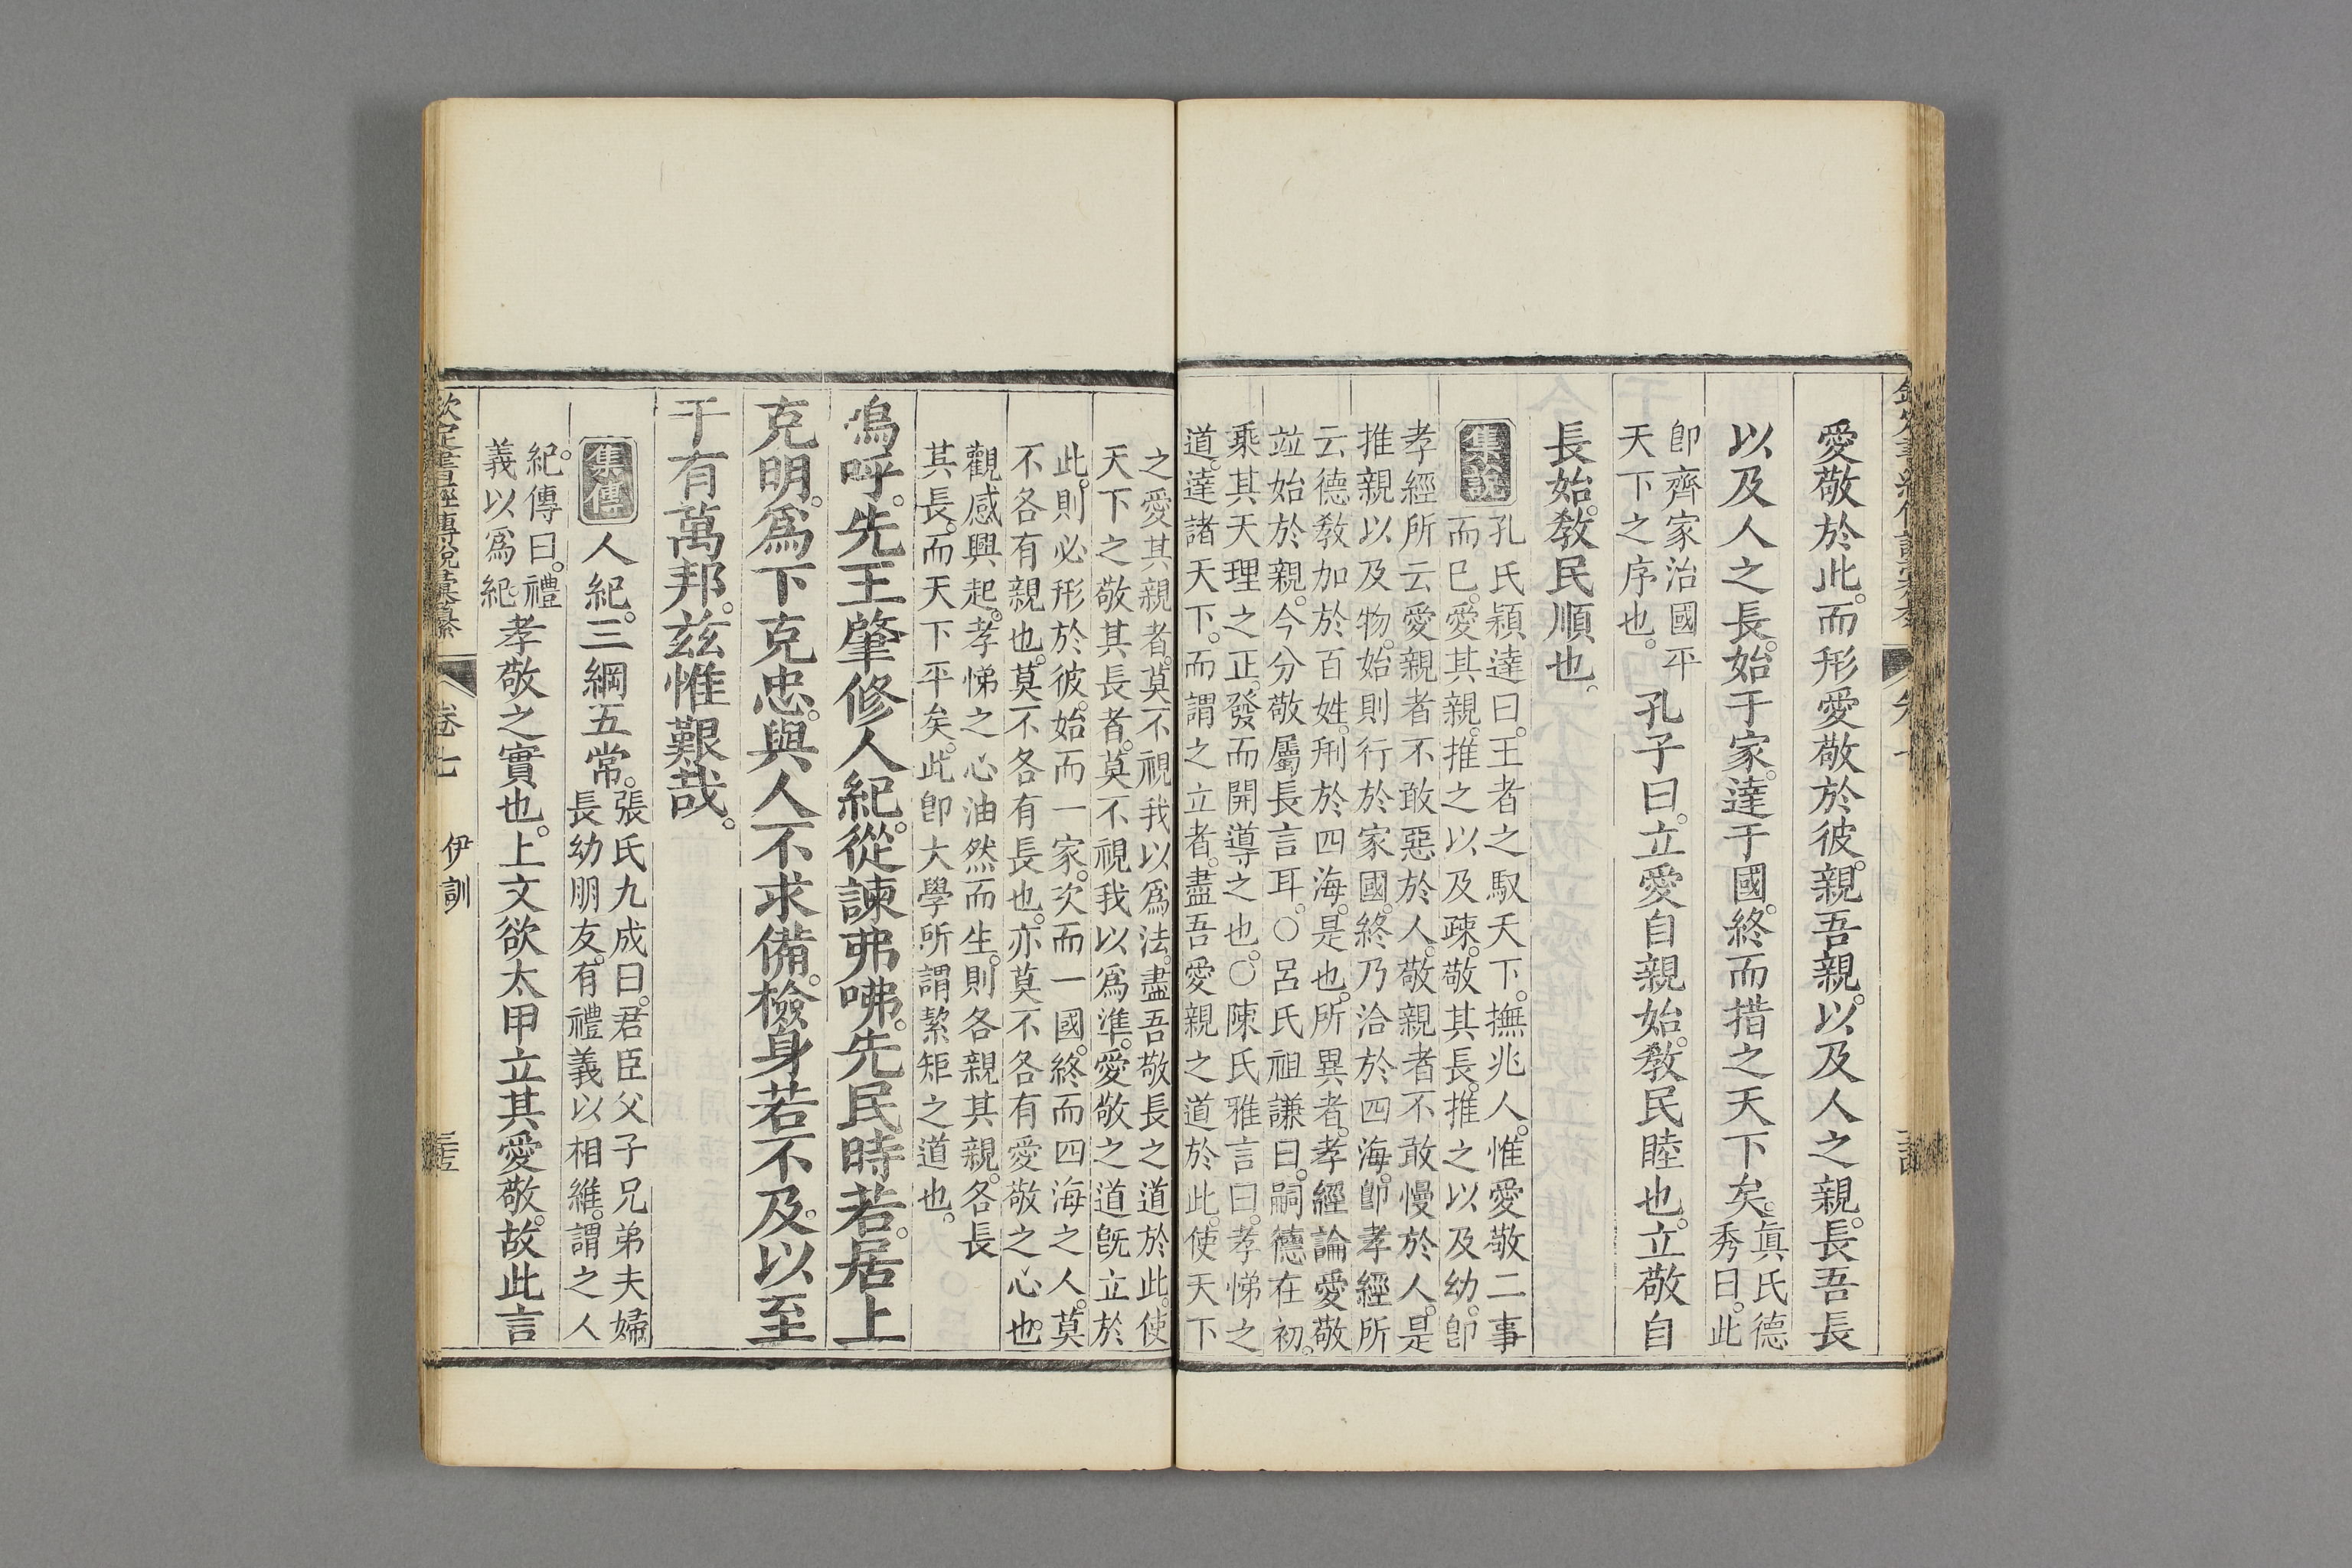 愛敬於此。而形愛敬於彼。親吾親。以及人之親。長吾長
以及人之長。始于家。達于國。終而措之天下矣。眞氏德
秀曰。此
卽齊家治國平
天下之序也。孔子曰。立愛自親始。敎民睦也。立敬自
長始。敎民順也。
集說
孔氏穎達曰。王者之馭天下。撫兆人。惟愛敬二事
而已。愛其親。推之以及疎。敬其長。推之以及幼。卽
孝經所云愛親者不敢惡於人。敬親者不敢慢於人。是
推親以及物。始則行於家國。終乃洽於四海。卽孝經所
云德敎加於百姓。刑於四海。是也。所異者。孝經論愛敬
竝始於親。今分敬屬長言耳。○呂氏祖謙曰。嗣德在初。
乘其天理之正。發而開導之也。○陳氏雅言曰。孝悌之
道。達諸天下。而謂之立者。盡吾愛親之道於此。使天下
之愛其親者。莫不視我以爲法。盡吾敬長之道於此。使
天下之敬其長者。莫不視我以爲準。愛敬之道旣立於
此。則必形於彼。始而一家。次而一國。終而四海之人。莫
不各有親也。莫不各有長也。亦莫不各有愛敬之心也。
觀感興起。孝悌之心油然而生。則各親其親。各長
其長。而天下平矣。此卽大學所謂絜矩之道也。
嗚呼。先王肇修人紀。從諫弗咈。先民時若。居上
克明。爲下克忠。與人不求備。檢身若不及。以至
于有萬邦。茲惟艱哉。
集傳
人紀。三綱五常。張氏九成曰。君臣父子兄弟夫婦
長幼朋友。有禮義以相維。謂之人
紀。傳曰。禮
義以爲紀。孝敬之實也。上文欲太甲立其愛敬。故此言
欽定書經傳說彙纂
卷七
伊訓